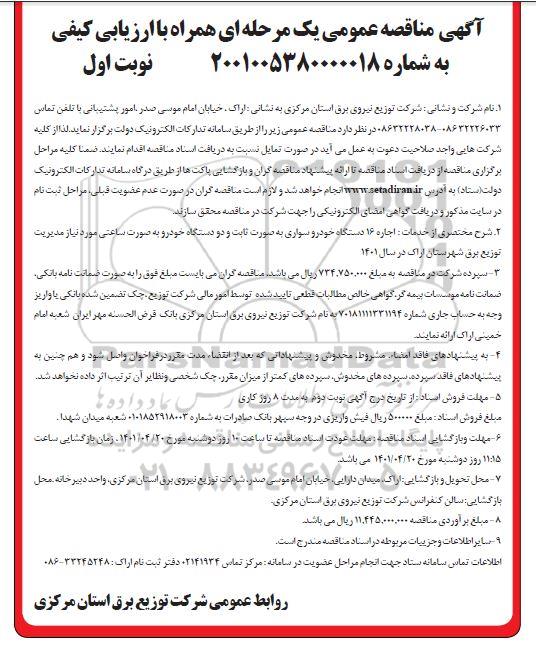 آگهی مناقصه عمومی یک مرحله ای همراه با ارزیابی کیفی
به شماره ۲۰۰۱۰۰۵۳۸۰۰۰۰۰۱۸ نوبت اول
۱. نام شرکت و نشانی : شرکت توزیع نیروی برق استان مرکزی به نشانی : اراک . خیابان امام موسی صدر .امور پشتیبانی با تلفن تماس
۰۸۶۳۲۲۲۶۰۳۳-۰۸۶۳۲۲۲۸۰۳۸ در نظر دارد مناقصه عمومی زیر را از طریق سامانه تدارکات الکترونیک دولت برگزار نماید.لذا از کلیه
شرکت هایی واجد صلاحیت دعوت به عمل می آید در صورت تمایل نسبت به دریافت اسناد مناقصه اقدام نمایند. ضمنا کلیه مراحل
برگزاری مناقصه از دریافت اسناد مناقصه تا ارائه پیشنهاد مناقصه گران و بازگشایی پاکت ها از طریق درگاه سامانه تدارکات الکترونیک
دولت(ستاد) به آدرس www.setadiran.ir انجام خواهد شد و لازم است مناقصه گران در صورت عدم عضویت قبلی، مراحل ثبت نام
در سایت مذکور و دریافت گواهی امضای الکترونیکی را جهت شرکت در مناقصه محقق سازند.
۲. شرح مختصری از خدمات : اجاره ۱۶ دستگاه خودرو سواری به صورت ثابت و دو دستگاه خودرو به صورت ساعتی مورد نیاز مدیریت
توزیع برق شهرستان اراک در سال ۱۴۰۱
۳- سپرده شرکت در مناقصه به مبلغ ۷۳۴,۷۵۰,۰۰۰ ریال می باشد. مناقصه گران می بایست مبلغ فوق را به صورت ضمانت نامه بانکی،
ضمانت نامه موسسات بیمه گر،گواهی خالص مطالبات قطعی تایید شده توسط امور مالی شرکت توزیع ,چک تضمین شده بانکی یا واریز
وجه به حساب جاری شماره ۷۰۱۸۱۱۱۱۳۳۱۱۹۴ به نام شرکت توزیع نیروی برق استان مرکزی بانک قرض الحسنه مهر ایران شعبه امام
خمینی اراک ارائه نمایند.
۴- به پیشنهادهای فاقد امضاء، مشروط، مخدوش و پیشنهاداتی که بعد از انقضاء مدت مقرر درفراخوان واصل شود و هم چنین به
پیشنهادهای فاقد سپرده، سپرده های مخدوش، سپرده های کمتر از میزان مقرر، چک شخصی ونظایر آن ترتیب اثر داده نخواهد شد.
۵- مهلت فروش اسناد : از تاریخ درج آگهی نوبت دوم به مدت ۸ روز کاری
مبلغ فروش اسناد : مبلغ ۵۰۰۰۰۰ ریال فیش واریزی در وجه سپهر بانک صادرات به شماره ۰۱۰۱۸۵۲۹۱۸۰۰۳ شعبه میدان شهدا .
۶-مهلت وبازگشایی اسناد مناقصه : مهلت عودت اسناد مناقصه تا ساعت ۱۰ روز دوشنبه مورخ ۱۴۰۱/۰۴/۲۰ . زمان بازگشایی ساعت
۱۱:۱۵ روز دوشنبه مورخ ۱۴۰۱/۰۴/۲۰ می باشد.
۷- محل تحویل و بازگشایی: اراک، میدان دارایی، خیابان امام موسی صدر، شرکت توزیع نیروی برق استان مرکزی، واحد دبیرخانه .محل
بازگشایی: سالن کنفرانس شرکت توزیع نیروی برق استان مرکزی.
۸- مبلغ برآوردی مناقصه ۱۱,۴۴۵,۰۰۰,۰۰۰ ریال می باشد.
۹-سایر اطلاعات وجزییات مربوطه در اسناد مناقصه مندرج است.
اطلاعات تماس سامانه ستاد جهت انجام مراحل عضویت در سامانه : مرکز تماس ۰۲۱۴۱۹۳۴ دفتر ثبت نام اراک : ۳۳۲۴۵۲۴۸-۰۸۶
روابط عمومی شرکت توزیع برق استان مرکزی
ParsNamadData
۰۲۱-۸۸۳۴۹۶۷۰-۵